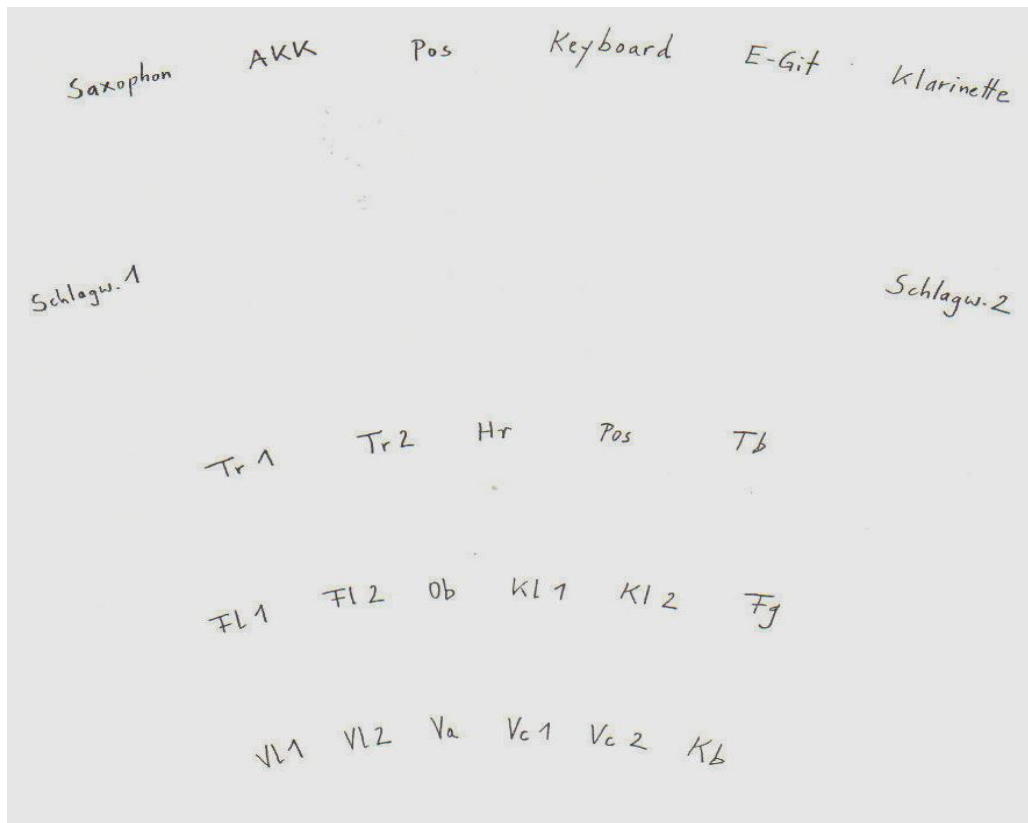 Saxophon AKK Pos Keyboard E-Git Klarinette
Schlagw. 1 Schlagw. 2
Tr 1 Tr 2 Hr Pos Tb
Fl 1 Fl 2 Ob Kl 1 Kl 2 Fg
Vl 1 Vl 2 Va Vc 1 Vc 2 Kb